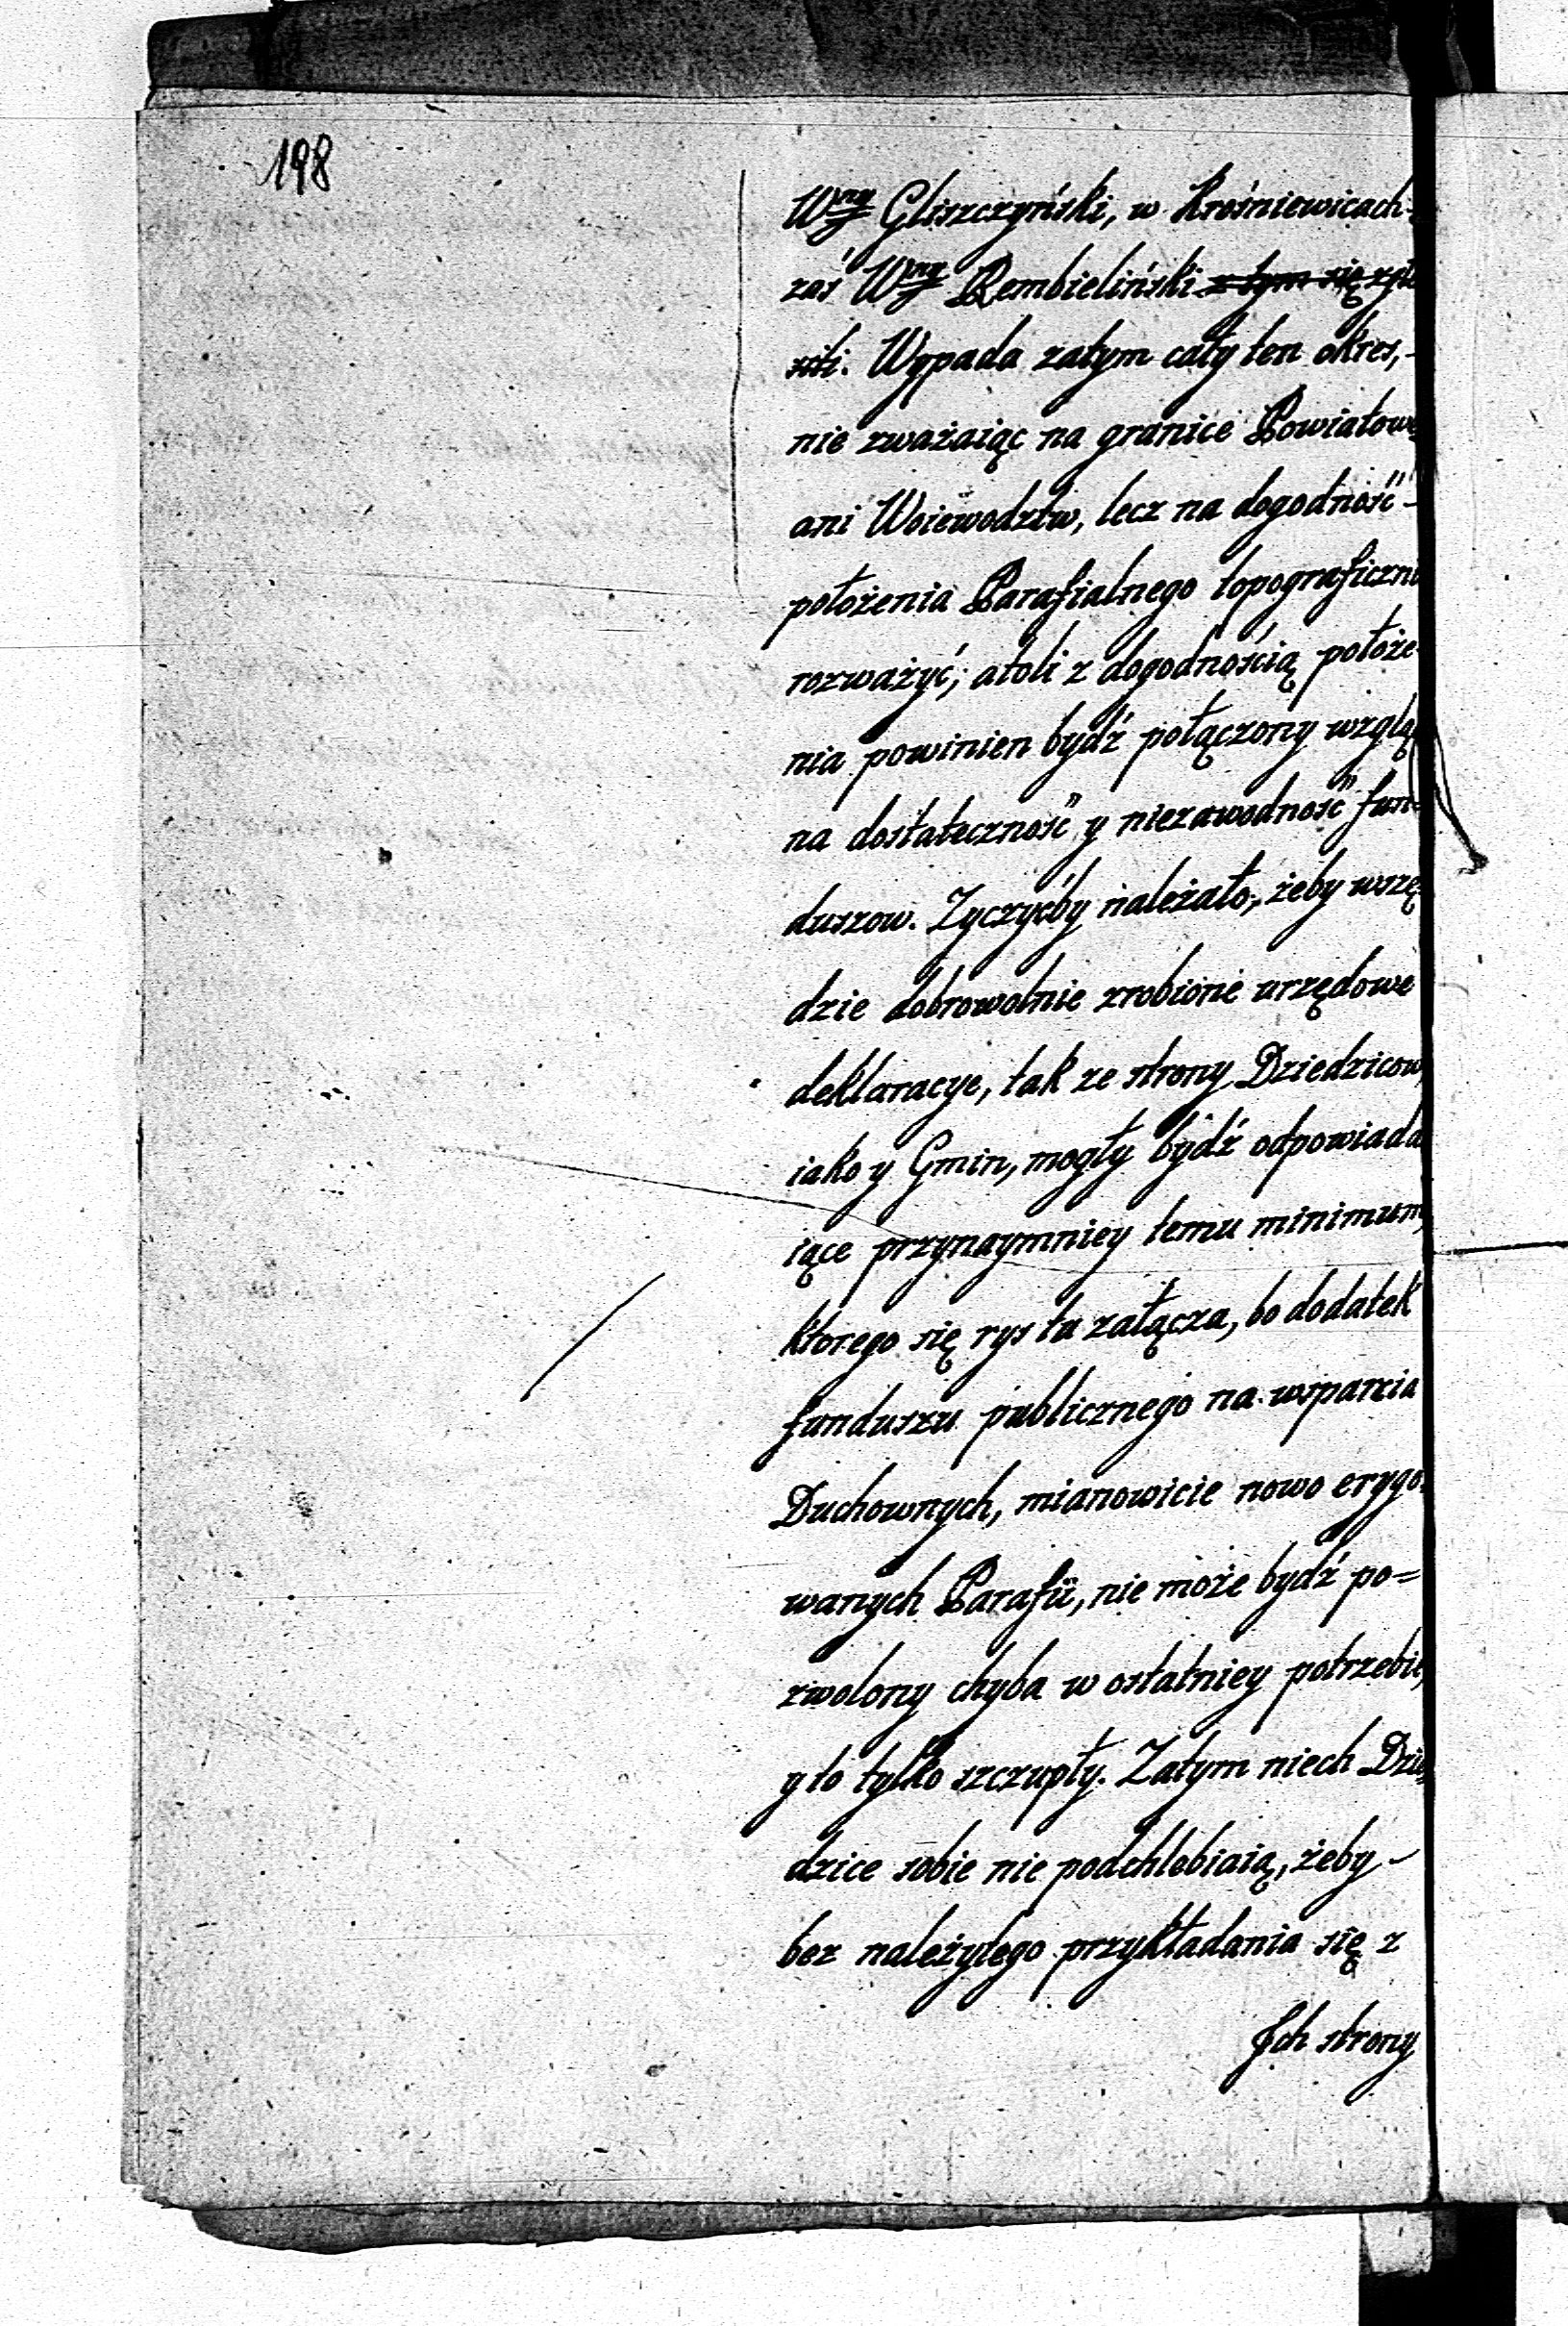 198
Wny Gliszczyński, w Krośniewicach-
zaś Wny Rembieliński z tym się zgło
sili. Wypada zatym cały ten okres,-
nie zważaiąc na granice Powiatowe
ani Woiewodztw, lecz na dogodność-
położenia Parafialnego topograficzni
rozważyć; atoli z dogodnością położe-
nia powinien bydź połączony wzglą
na dostateczność y niezawodność fun-
duszow. Zyczyćby należało, żeby wszę-
dzie dobrowolnie zrobione urzędowe
deklaracye, tak ze strony Dziedzicow,
iako y Gmin, mogły bydź odpowiada
iące przynaymniey temu minimum,
ktorego się rys tu załącza, bo dodatek
funduszu publicznego na wsparcia
Duchownych, mianowicie nowo erygo-
wanych Parafii, nie może bydź po=
zwolony chyba w ostatniey potrzebie,
y to tylko szczupły. Zatym niech Dzie-
dzice sobie nie podchlebiaią, żeby-
bez należytego przykładania się z
Ich strony